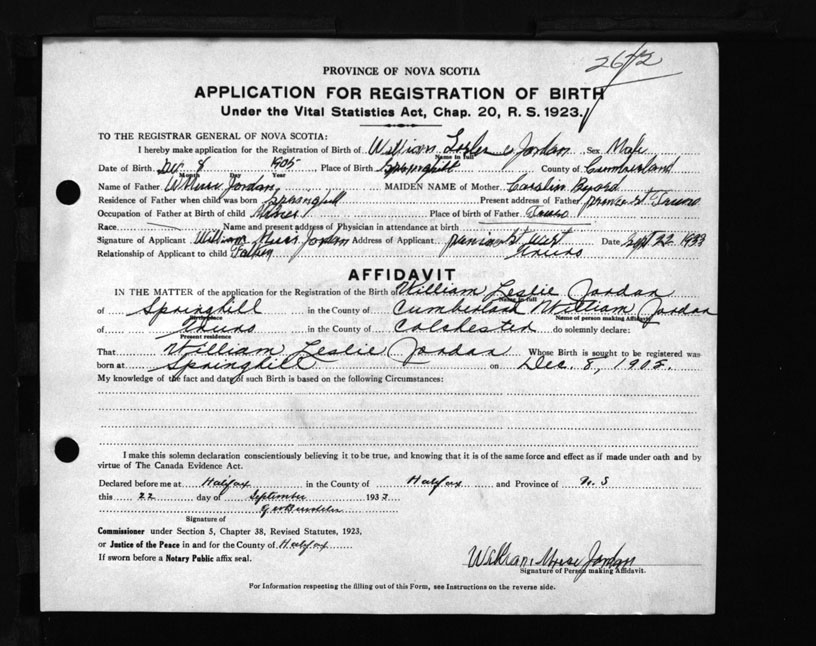 PROVINCE OF NOVA SCOTIA
APPLICATION FOR REGISTRATION OF BIRTH
Under the Vital Statistics Act, Chap. 20, R. S. 1923.
TO THE REGISTRAR GENERAL OF NOVA SCOTIA:
I hereby make application for the Registration of Birth of William Leslie Jordan Sex Male
Name in full
Date of Birth Dec 8 1905 Place of Birth Springhill County of Cumberland
Month Day Year
Name of Father Jordan MAIDEN NAME of Mother
Residence of Father when child was born Springhill Present address of Father Truro
Occupation of Father at Birth of child Miner Place of birth of Father Truro
Race Name and present address of Physician in attendance at birth
Signature of Applicant William Jordan Address of Applicant west Date Sept 22 1933
Truro
Relationship of Applicant to child Father
AFFIDAVIT
IN THE MATTER of the application for the Registration of the Birth of William Leslie Jordan
Name in full
of Springhill in the County of Cumberland William Jordan
Birthplace Name of person making Affidavit
of Truro in the County of Colchester do solemnly declare:
Present residence
That William Leslie Jordan Whose Birth is sought to be registered was
born at Springhill on Dec. 8, 1905.
My knowledge of the fact and date of such Birth is based on the following Circumstances:
I make this solemn declaration conscientiously believing it to be true, and knowing that it is of the same force and effect as if made under oath and by
virtue of The Canada Evidence Act.
Declared before me at Halifax in the County of Halifax and Province of N. S
this 22 day of September 193
Signature of
Commissioner under Section 5, Chapter 38, Revised Statutes, 1923,
or Justice of the Peace in and for the County of Halifax
If sworn before a Notary Public affix seal.
William Jordan
Signature of Person making Affidavit.
For Information respecting the filling out of this Form, see Instructions on the reverse side.